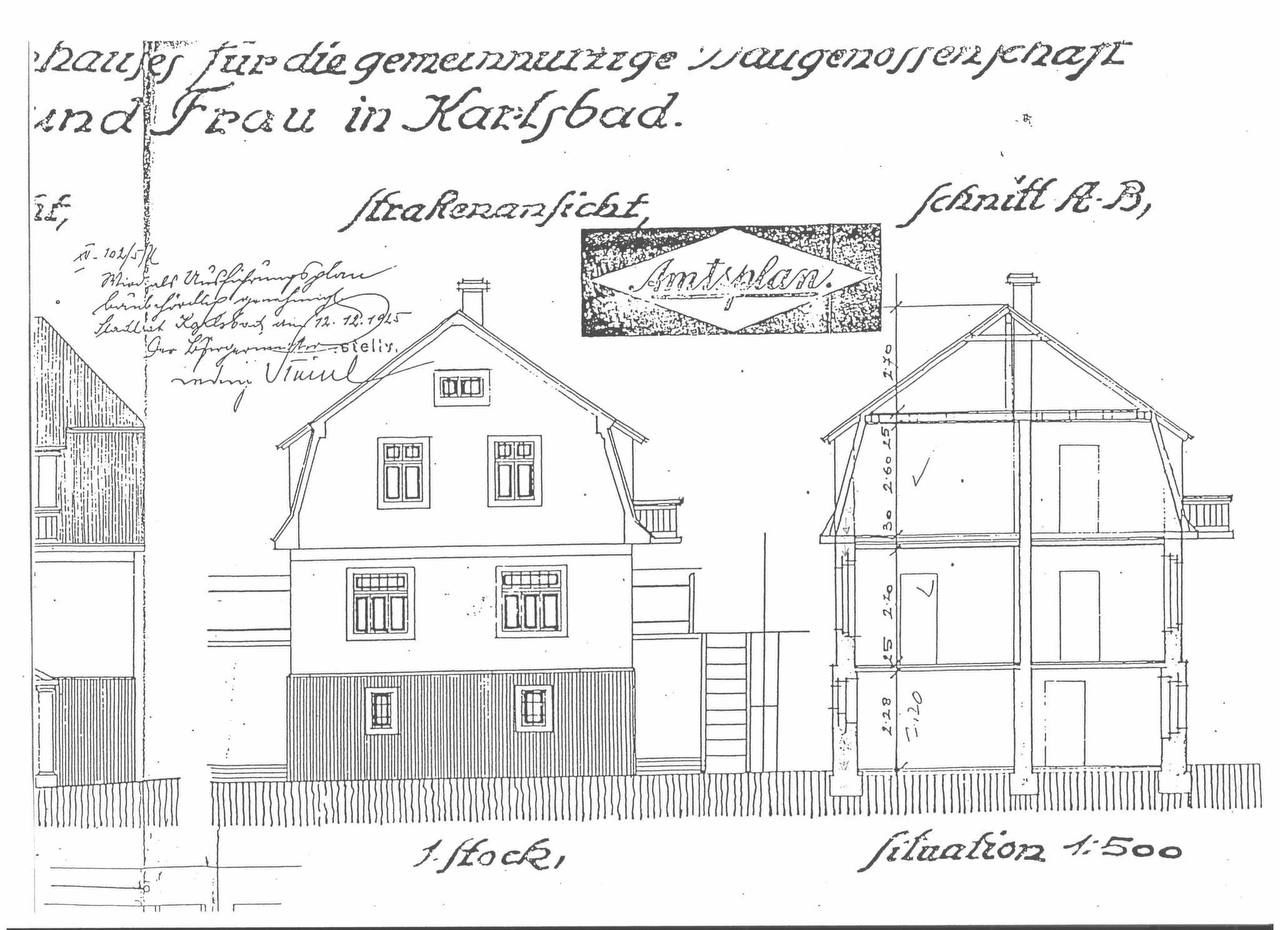 für die gemeinnützige Baugenossenschaft
und Frau in Karlsbad.
Straßenansicht,
Schnitt A-B,
Amtsplan.
Wird als Ausführungsplan
baubehördlich genehmigt
Stadtrat Karlsbad am 12.12.1925
Der Bürgermeister stellv.
2.70
25
2.60
30
2.70
25
2.28
1. Stock,
Situation 1:500